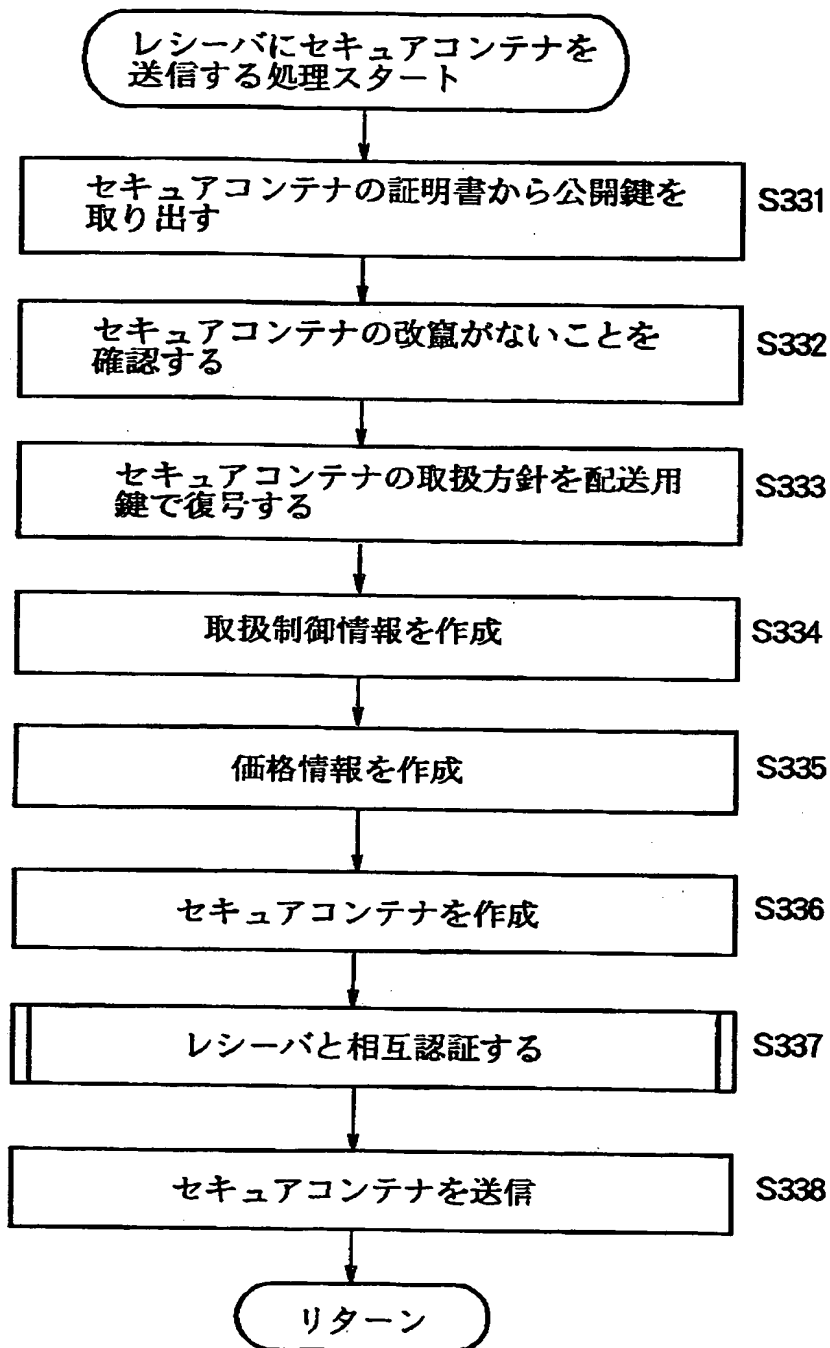 レシーバにセキュアコンテナを
送信する処理スタート
セキュアコンテナの証明書から公開鍵を
取り出す
S331
セキュアコンテナの改竄がないことを
確認する
S332
セキュアコンテナの取扱方針を配送用
鍵で復号する
S333
取扱制御情報を作成
S334
価格情報を作成
S335
セキュアコンテナを作成
S336
レシーバと相互認証する
S337
セキュアコンテナを送信
S338
リターン